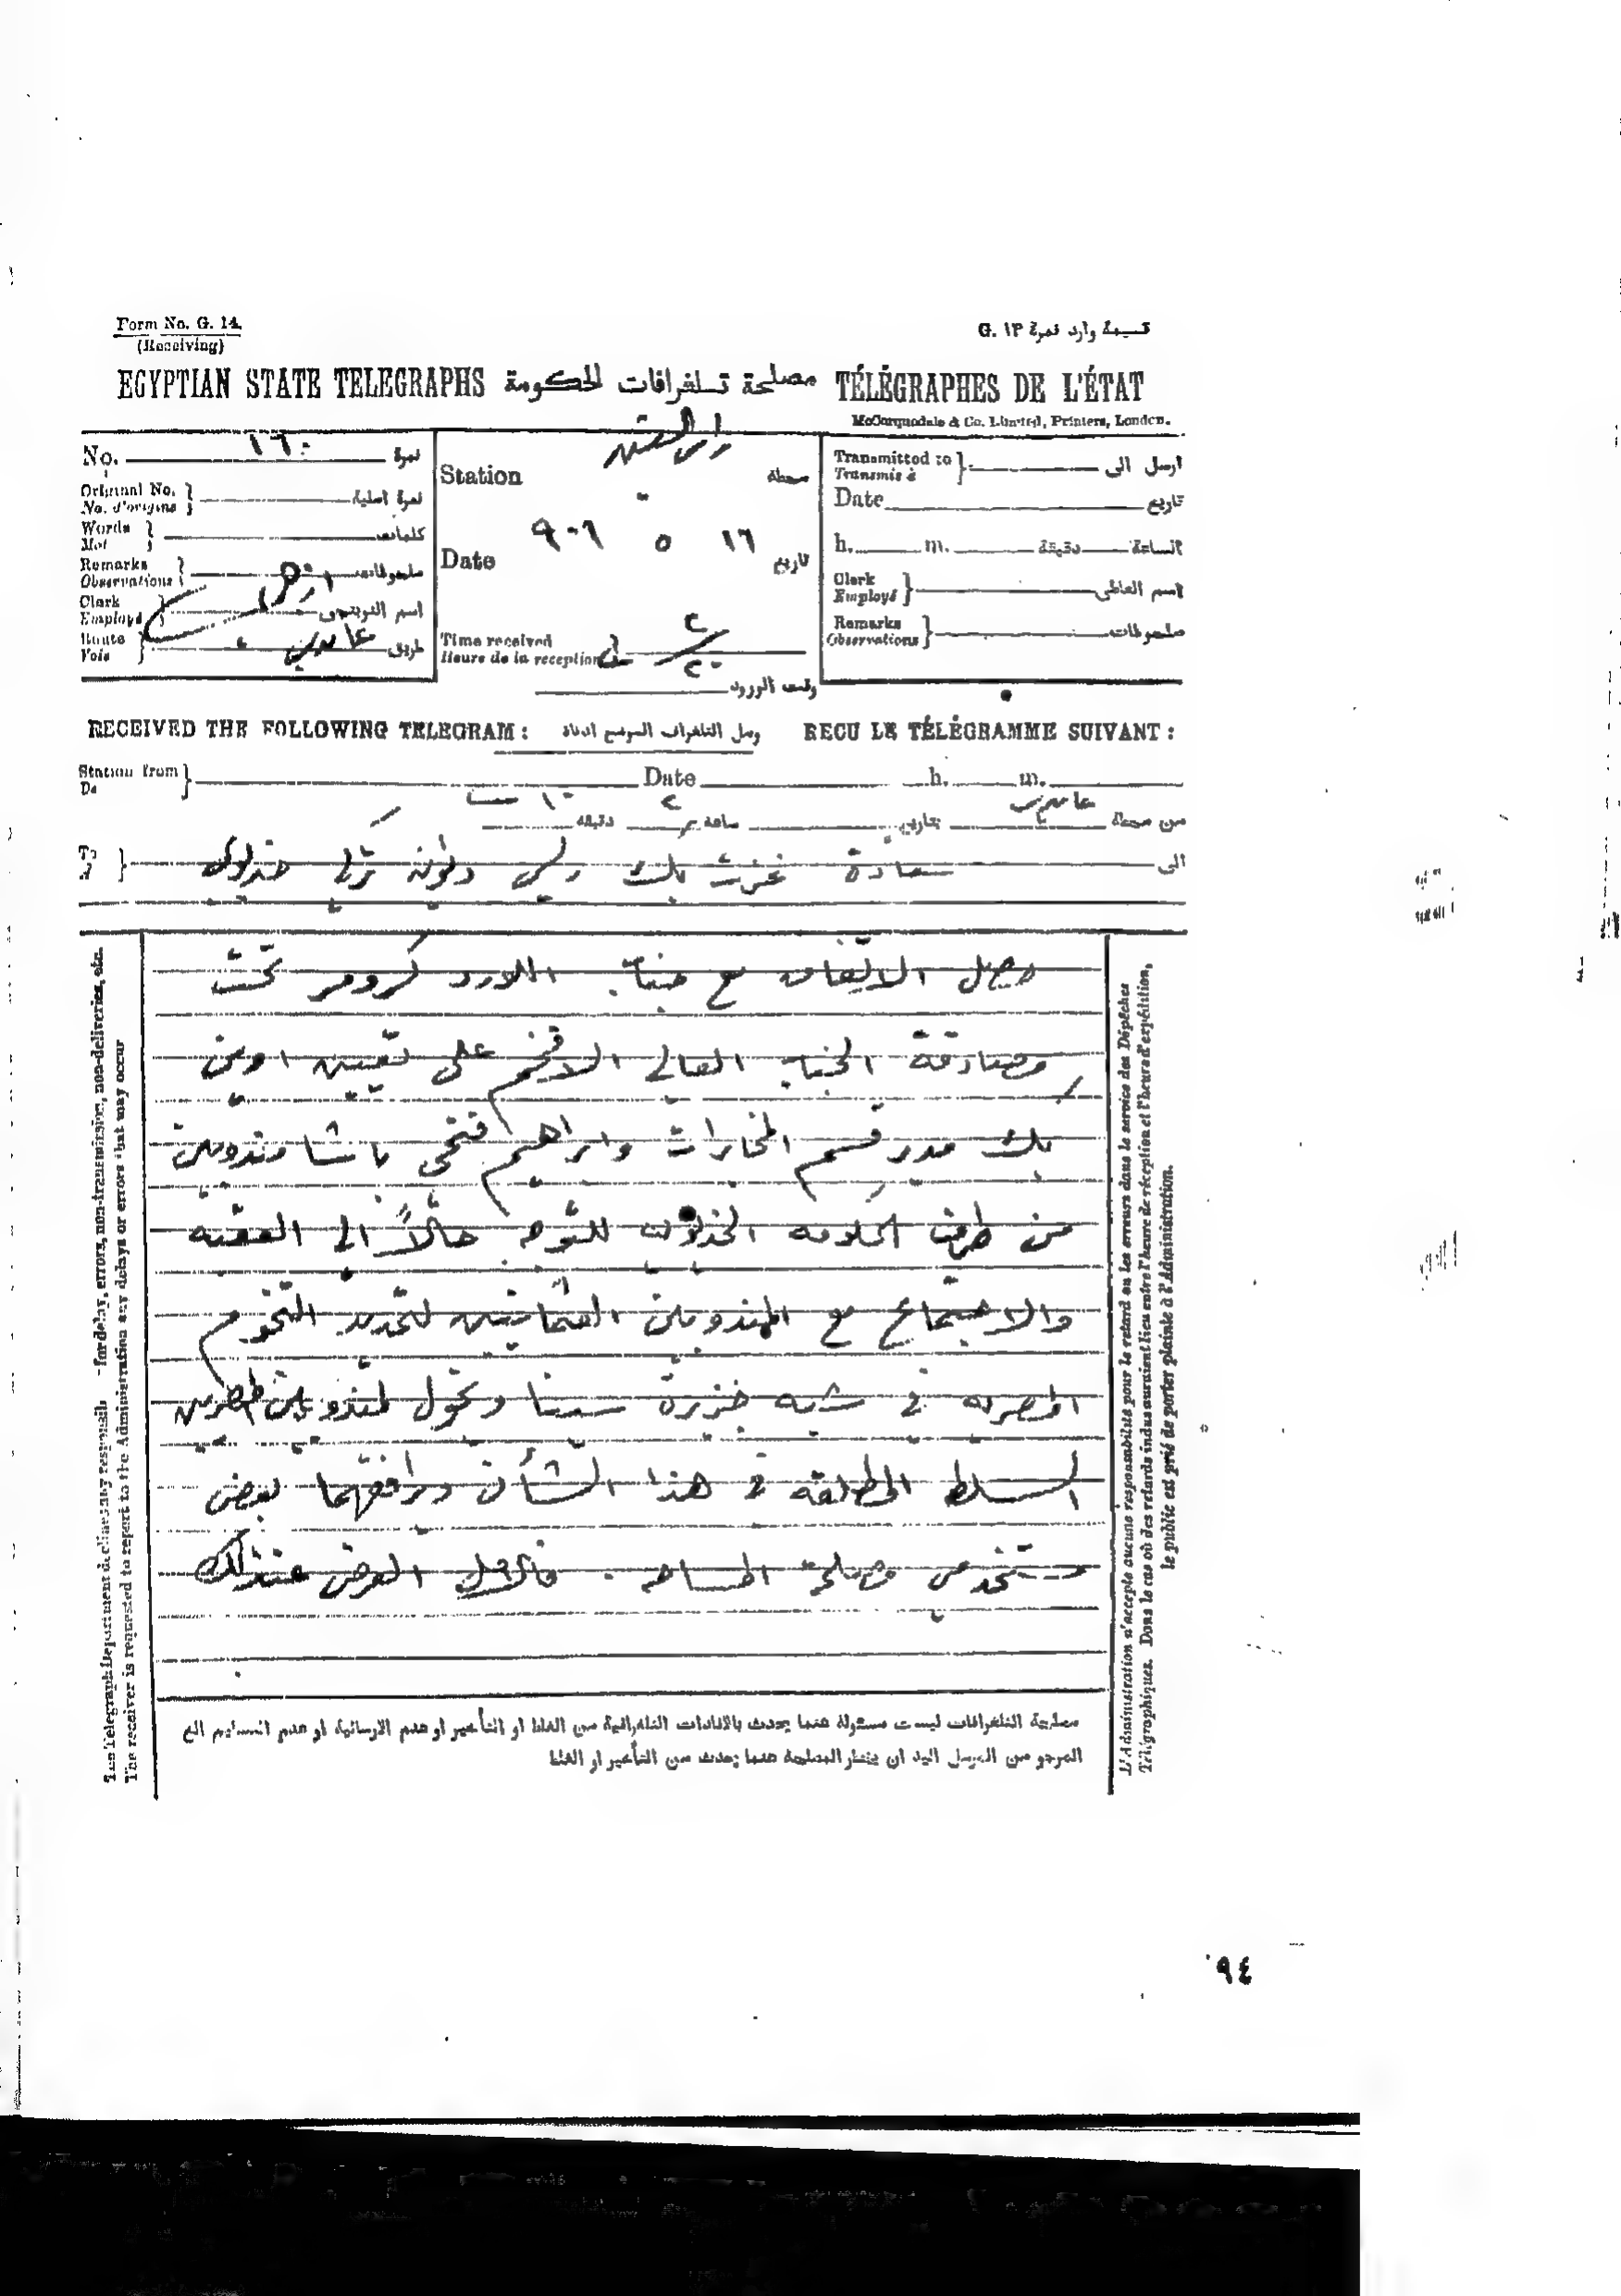 Form No. G. 14.
(Receiving)
G. ١٣ قسيمة وارد نمرة
EGYPTIAN STATE TELEGRAPHS مصلحة تلغرافات الحكومة TÉLÉGRAPHES DE L'ÉTAT
McCorquodale & Co. Limited, Printers, London.
No. ١٦٠ نمرة
Original No. نمرة اصلية
No. d'origine
Words كلمات
Mot
Remarks ملحوظات
Observations
Clerk اسم
Employé
Route عابدين طريق
Voie
Station راس التين محطة
Date ١٦ ٥ ٩٠٦ تاريخ
Time received
Heure de la reception ٢ ٢٠
وقت الورود
Transmitted to ارسل الى
Transmis à
Date تاريخ
h. m. دقيقة الساعة
Clerk
Employé
Remarks ملحوظات
Observations
RECEIVED THE FOLLOWING TELEGRAM : وصل التلغراف الموضح ادناه RECU LE TÉLÉGRAMME SUIVANT :
Station from Date h. m.
De
من محطة عابدين بتاريخ ساعة ٢ دقيقة ١٠
To الى سعادة عزت بك رئيس ديوان تركي خديوي
حصل الاتفاق مع جناب اللورد كرومر تحت
مصادقة الجناب العالي الافخم على تعيين اوين
بك مدير قسم المخابرات وابراهيم فتحي باشا مندوبين
من طرف الحكومة الخديوية للتوجه حالاً الى العقبه
والاجتماع مع المندوبين العثمانيين لتحديد التخوم
المصريه في شبه جزيرة سينا وتخول لمندوبين المصريين
السلط المطلقه في هذا الشأن ويرافقهما بعض
مستخدمي مصلحة المساحه. فالامل العرض عن ذلك
مصلحة التلغرافات ليست مسئولة عما يحدث بالافادات التلغرافية من الغلط او التأخير او عدم الارسالية او عدم التسليم الخ
المرجو من المرسل اليه ان يخطر المصلحة عما يحدث من التأخير او الغلط
The Telegraph Department declines any responsibility for delay, errors, non-transmission, non-deliveries, etc.
The receiver is requested to report to the Administration any delays or errors that may occur
L'Administration n'accepte aucune responsabilité pour le retard ou les erreurs dans le service des Dépêches
Télégraphiques. Dans le cas où des retards indus auraient lieu entre l'heure de réception et l'heure d'expédition,
le public est prié de porter plainte à l'Administration.
٩٤